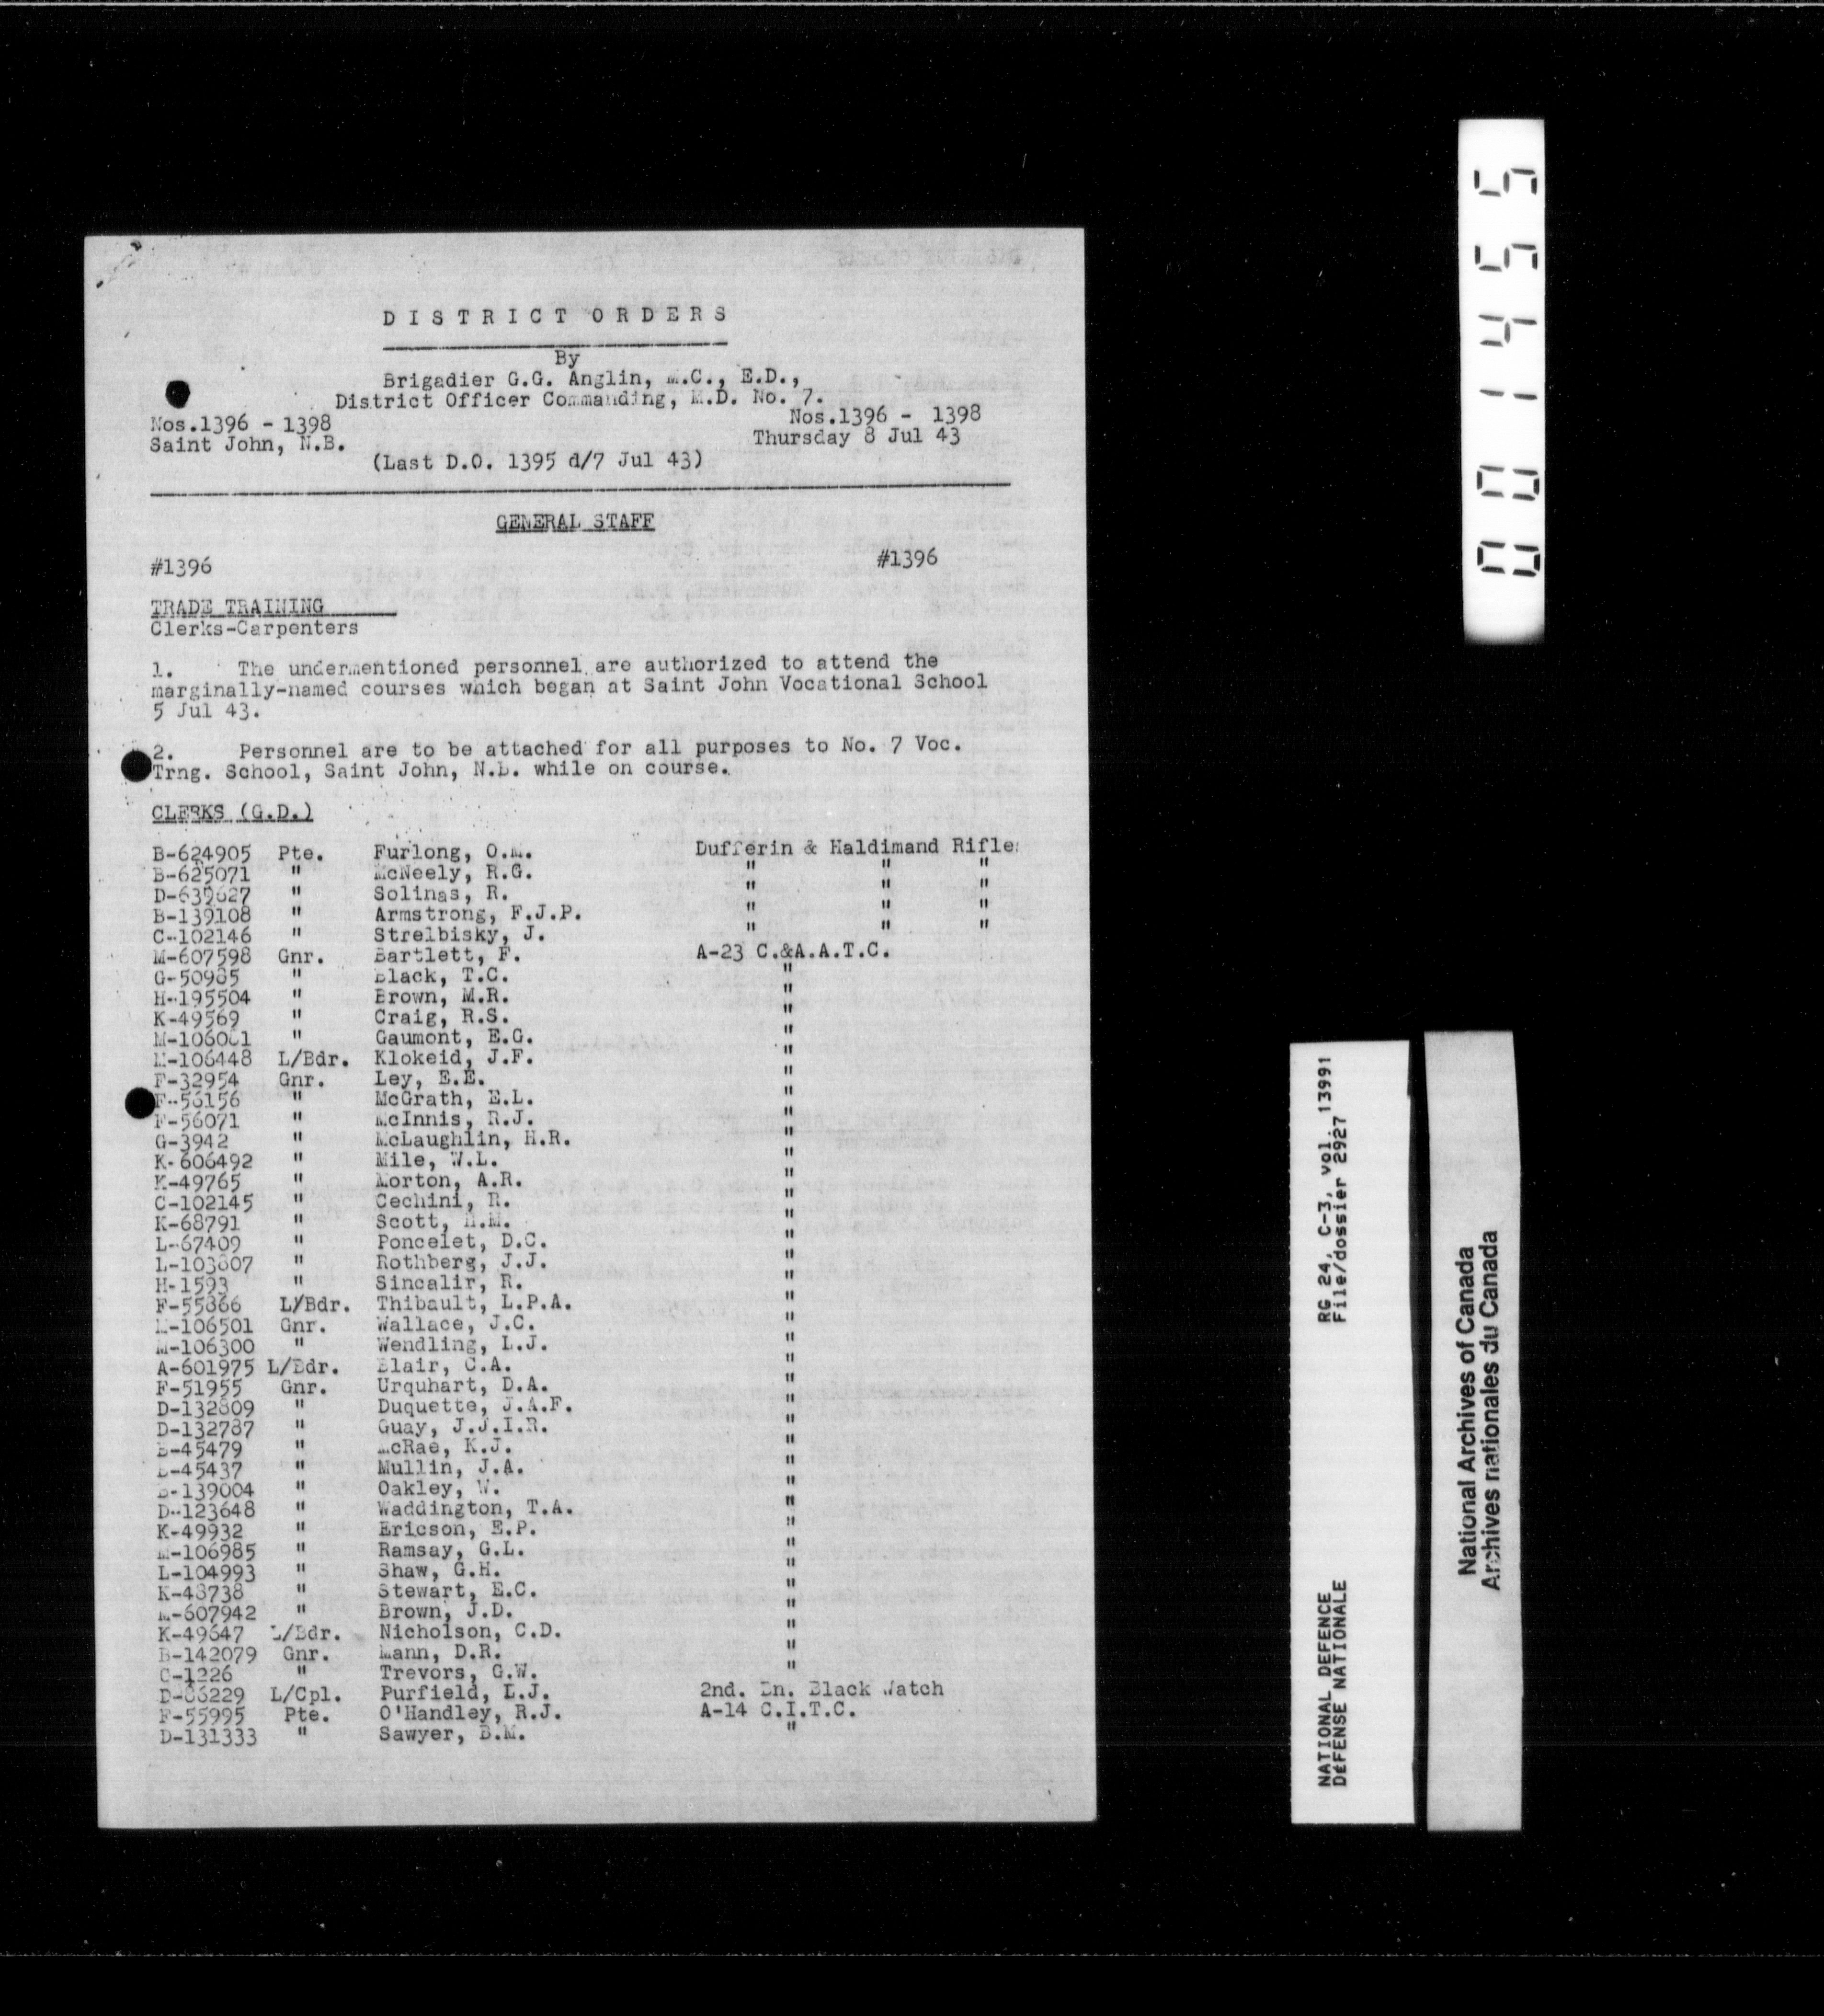 DISTRICT ORDERS
By
Brigadier G.G. Anglin, M.C., E.D.,
District Officer Commanding, M.D. No. 7.
Nos.1396 - 1398 Nos.1396 - 1398
Saint John, N.B. Thursday 8 Jul 43
(Last D.O. 1395 d/7 Jul 43)
GENERAL STAFF
#1396 #1396
TRADE TRAINING
Clerks-Carpenters
1. The undermentioned personnel are authorized to attend the
marginally-named courses which began at Saint John Vocational School
5 Jul 43.
2. Personnel are to be attached for all purposes to No. 7 Voc.
Trng. School, Saint John, N.B. while on course.
CLERKS (G.D.)
B-624905 Pte. Furlong, O.M. Dufferin & Haldimand Rifles
B-625071 " McNeely, R.G. " " "
D-639627 " Solinas, R. " " "
B-139108 " Armstrong, F.J.P. " " "
C-102146 " Strelbisky, J. " " "
M-607598 Gnr. Bartlett, F. A-23 C.&A.A.T.C.
G-50985 " Black, T.C. "
H-195504 " Brown, M.R. "
K-49569 " Craig, R.S. "
" Gaumont, E.G. "
M-106448 L/Bdr. Klokeid, J.F. "
F-32954 Gnr. Ley, E.E. "
F-56156 " McGrath, E.L. "
F-56071 " McInnis, R.J. "
G-3942 " McLaughlin, H.R. "
K-606492 " Mile, W.L. "
K-49765 " Morton, A.R. "
C-102145 " Cechini, R. "
K-68791 " Scott, H.M. "
L-67409 " Poncelet, D.C. "
L-103807 " Rothberg, J.J. "
H-1593 " Sincalir, R. "
F-55866 L/Bdr. Thibault, L.P.A. "
M-106501 Gnr. Wallace, J.C. "
M-106300 " Wendling, L.J. "
A-601975 L/Bdr. Blair, C.A. "
F-51955 Gnr. Urquhart, D.A. "
D-132809 " Duquette, J.A.F. "
D-132787 " Guay, J.J.I.R. "
B-45479 " McRae, K.J. "
B-45437 " Mullin, J.A. "
B-139004 " Oakley, W. "
D-123648 " Waddington, T.A. "
K-49932 " Ericson, E.P. "
M-106985 " Ramsay, G.L. "
L-104993 " Shaw, G.H. "
K-48738 " Stewart, E.C. "
M-607942 " Brown, J.D. "
K-49647 L/Bdr. Nicholson, C.D. "
B-142079 Gnr. Mann, D.R. "
C-1226 " Trevors, G.W. "
D-86229 L/Cpl. Purfield, L.J. 2nd. Bn. Black Watch
F-55995 Pte. O'Handley, R.J. A-14 C.I.T.C.
D-131333 " Sawyer, B.M. "
001455
NATIONAL DEFENCE RG 24, C-3, vol. 13991
DÉFENSE NATIONALE File/dossier 2927
National Archives of Canada
Archives nationales du Canada